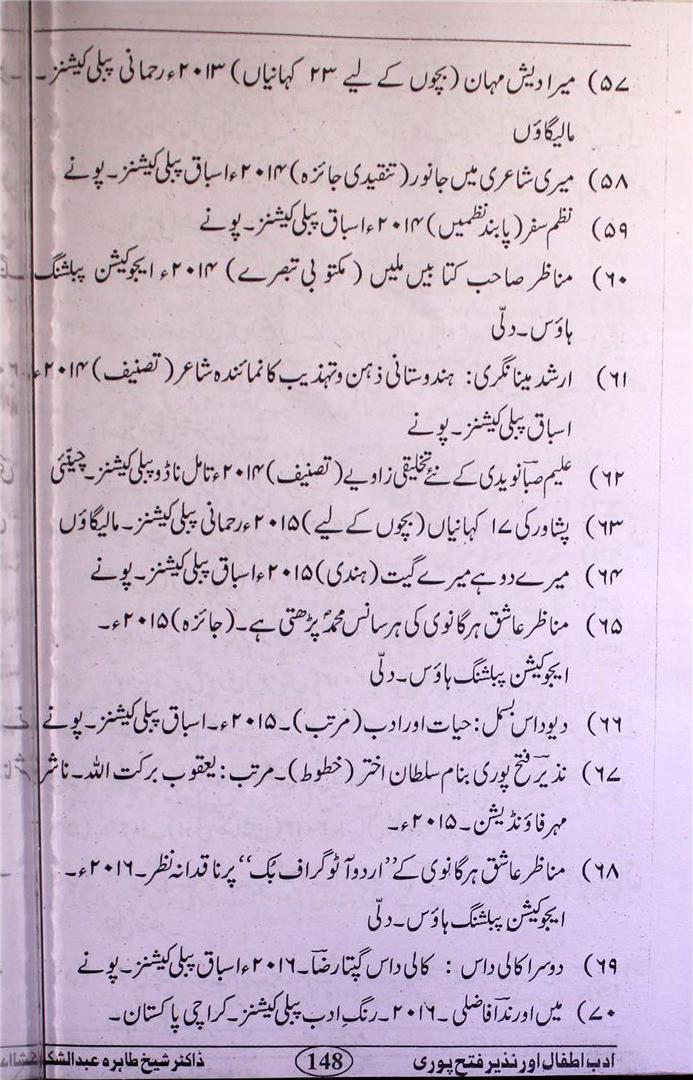 ۵۷) میرا دیش مہان (بچوں کے لیے ۲۳ کہانیاں) ۲۰۱۳ء رحمانی پبلی کیشنز۔
مالیگاؤں
۵۸) میری شاعری میں جانور (تنقیدی جائزہ) ۲۰۱۴ء اسباق پبلی کیشنز۔ پونے
۵۹) نظم سفر (پابند نظمیں) ۲۰۱۴ء اسباق پبلی کیشنز۔ پونے
۶۰) مناظر صاحب کتابیں ملیں (مکتوبی تبصرے) ۲۰۱۴ء ایجوکیشن پبلشنگ
ہاؤس۔ دلّی
۶۱) ارشد مینا نگری: ہندوستانی ذہن و تہذیب کا نمائندہ شاعر (تصنیف) ۲۰۱۴ء
اسباق پبلی کیشنز۔ پونے
۶۲) علیم صباؔ نویدی کے نئے تخلیقی زاویے (تصنیف) ۲۰۱۴ء تامل ناڈو پبلی کیشنز۔ چینّئی
۶۳) پشاور کی ۱۷ کہانیاں (بچوں کے لیے) ۲۰۱۵ء رحمانی پبلی کیشنز۔ مالیگاؤں
۶۴) میرے دوہے میرے گیت (ہندی) ۲۰۱۵ء اسباق پبلی کیشنز۔ پونے
۶۵) مناظر عاشق ہرگانوی کی ہر سانس محمدؐ پڑھتی ہے۔ (جائزہ) ۲۰۱۵ء۔
ایجوکیشن پبلشنگ ہاؤس۔ دلّی
۶۶) دیوداس بسملؔ: حیات اور ادب (مرتب)۔ ۲۰۱۵ء۔ اسباق پبلی کیشنز۔ پونے
۶۷) نذیرؔ فتح پوری بنام سلطان اختر (خطوط)۔ مرتب: یعقوب برکت اللہ۔ ناشر
مہر فاؤنڈیشن۔ ۲۰۱۵ء۔
۶۸) مناظر عاشق ہرگانوی کے ”اردو آٹو گراف بُک“ پر ناقدانہ نظر۔ ۲۰۱۶ء۔
ایجوکیشن پبلشنگ ہاؤس۔ دلّی
۶۹) دوسرا کالی داس : کالی داس گپتا رضاؔ۔ ۲۰۱۶ء اسباق پبلی کیشنز۔ پونے
۷۰) میں اور نداؔ فاضلی۔ ۲۰۱۶۔ رنگِ ادب پبلی کیشنز۔ کراچی پاکستان۔
ادب اطفال اور نذیر فتح پوری 148 ڈاکٹر شیخ طاہرہ عبدالشکور